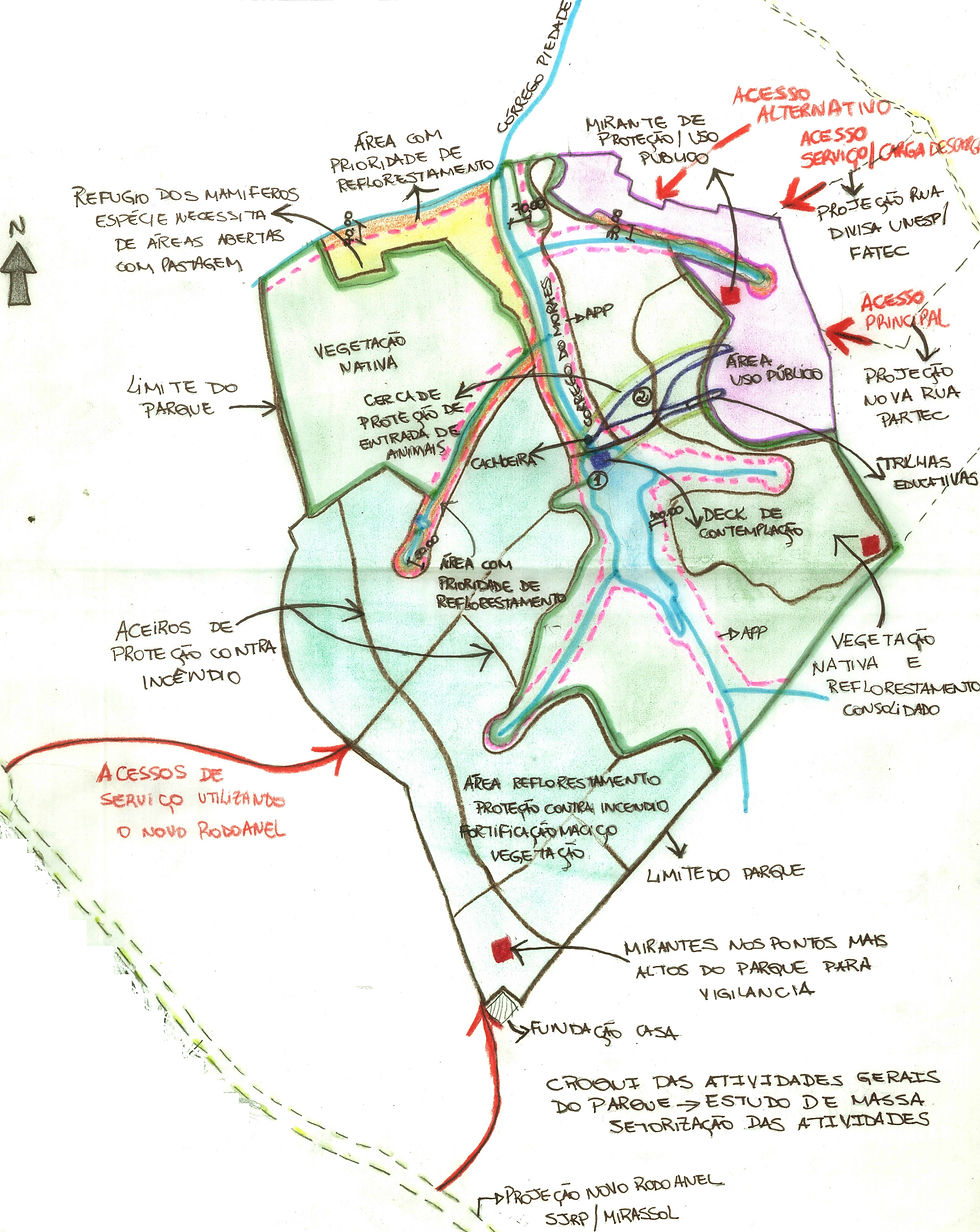 CÓRREGO PIEDADE
ACESSO
ALTERNATIVO
ACESSO
SERVIÇO/CARGA DESCARGA
MIRANTE DE
PROTEÇÃO/USO
PÚBLICO
ÁREA COM
PRIORIDADE DE
REFLORESTAMENTO
REFUGIO DOS MAMIFEROS
ESPÉCIE NECESSITA
DE ÁREAS ABERTAS
COM PASTAGEM
PROJEÇÃO RUA
DIVISA UNESP/
FATEC
N
ACESSO
PRINCIPAL
APP
VEGETAÇÃO
NATIVA
ÁREA
USO PÚBLICO
PROJEÇÃO
NOVA RUA
PARTEC
LIMITE DO
PARQUE
CERCA DE
PROTEÇÃO DE
ENTRADA DE
ANIMAIS
2
CACHOEIRA
1
TRILHAS
EDUCATIVAS
100.00
DECK DE
CONTEMPLAÇÃO
ÁREA COM
PRIORIDADE DE
REFLORESTAMENTO
ACEIROS DE
PROTEÇÃO CONTRA
INCÊNDIO
APP
VEGETAÇÃO
NATIVA E
REFLORESTAMENTO
CONSOLIDADO
ACESSOS DE
SERVIÇO UTILIZANDO
O NOVO RODOANEL
ÁREA REFLORESTAMENTO
PROTEÇÃO CONTRA INCENDIO
FORTIFICAÇÃO MACIÇO
VEGETAÇÃO
LIMITE DO PARQUE
MIRANTES NOS PONTOS MAIS
ALTOS DO PARQUE PARA
VIGILANCIA
FUNDAÇÃO CASA
CROQUI DAS ATIVIDADES GERAIS
DO PARQUE → ESTUDO DE MASSA
SETORIZAÇÃO DAS ATIVIDADES
PROJEÇÃO NOVO RODOANEL
SJRP/MIRASSOL